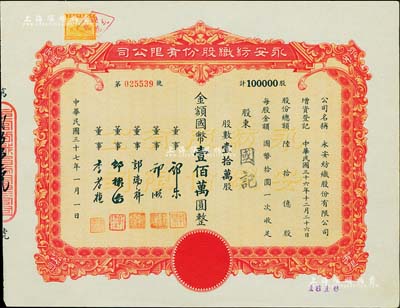 司公限有份股織紡安永
第 025539 號
計100000股
公司名稱 永安紡織股份有限公司
增資登記 中華民國三十六年十二月二十六日
股份總額 陸拾億股
每股金額 國幣十圓一次收足
股東 國記
股數壹拾萬股
金額國幣壹佰萬圓整
董事
董事
董事 郭瑞祥
董事
董事
中華民國三十七年一月一日